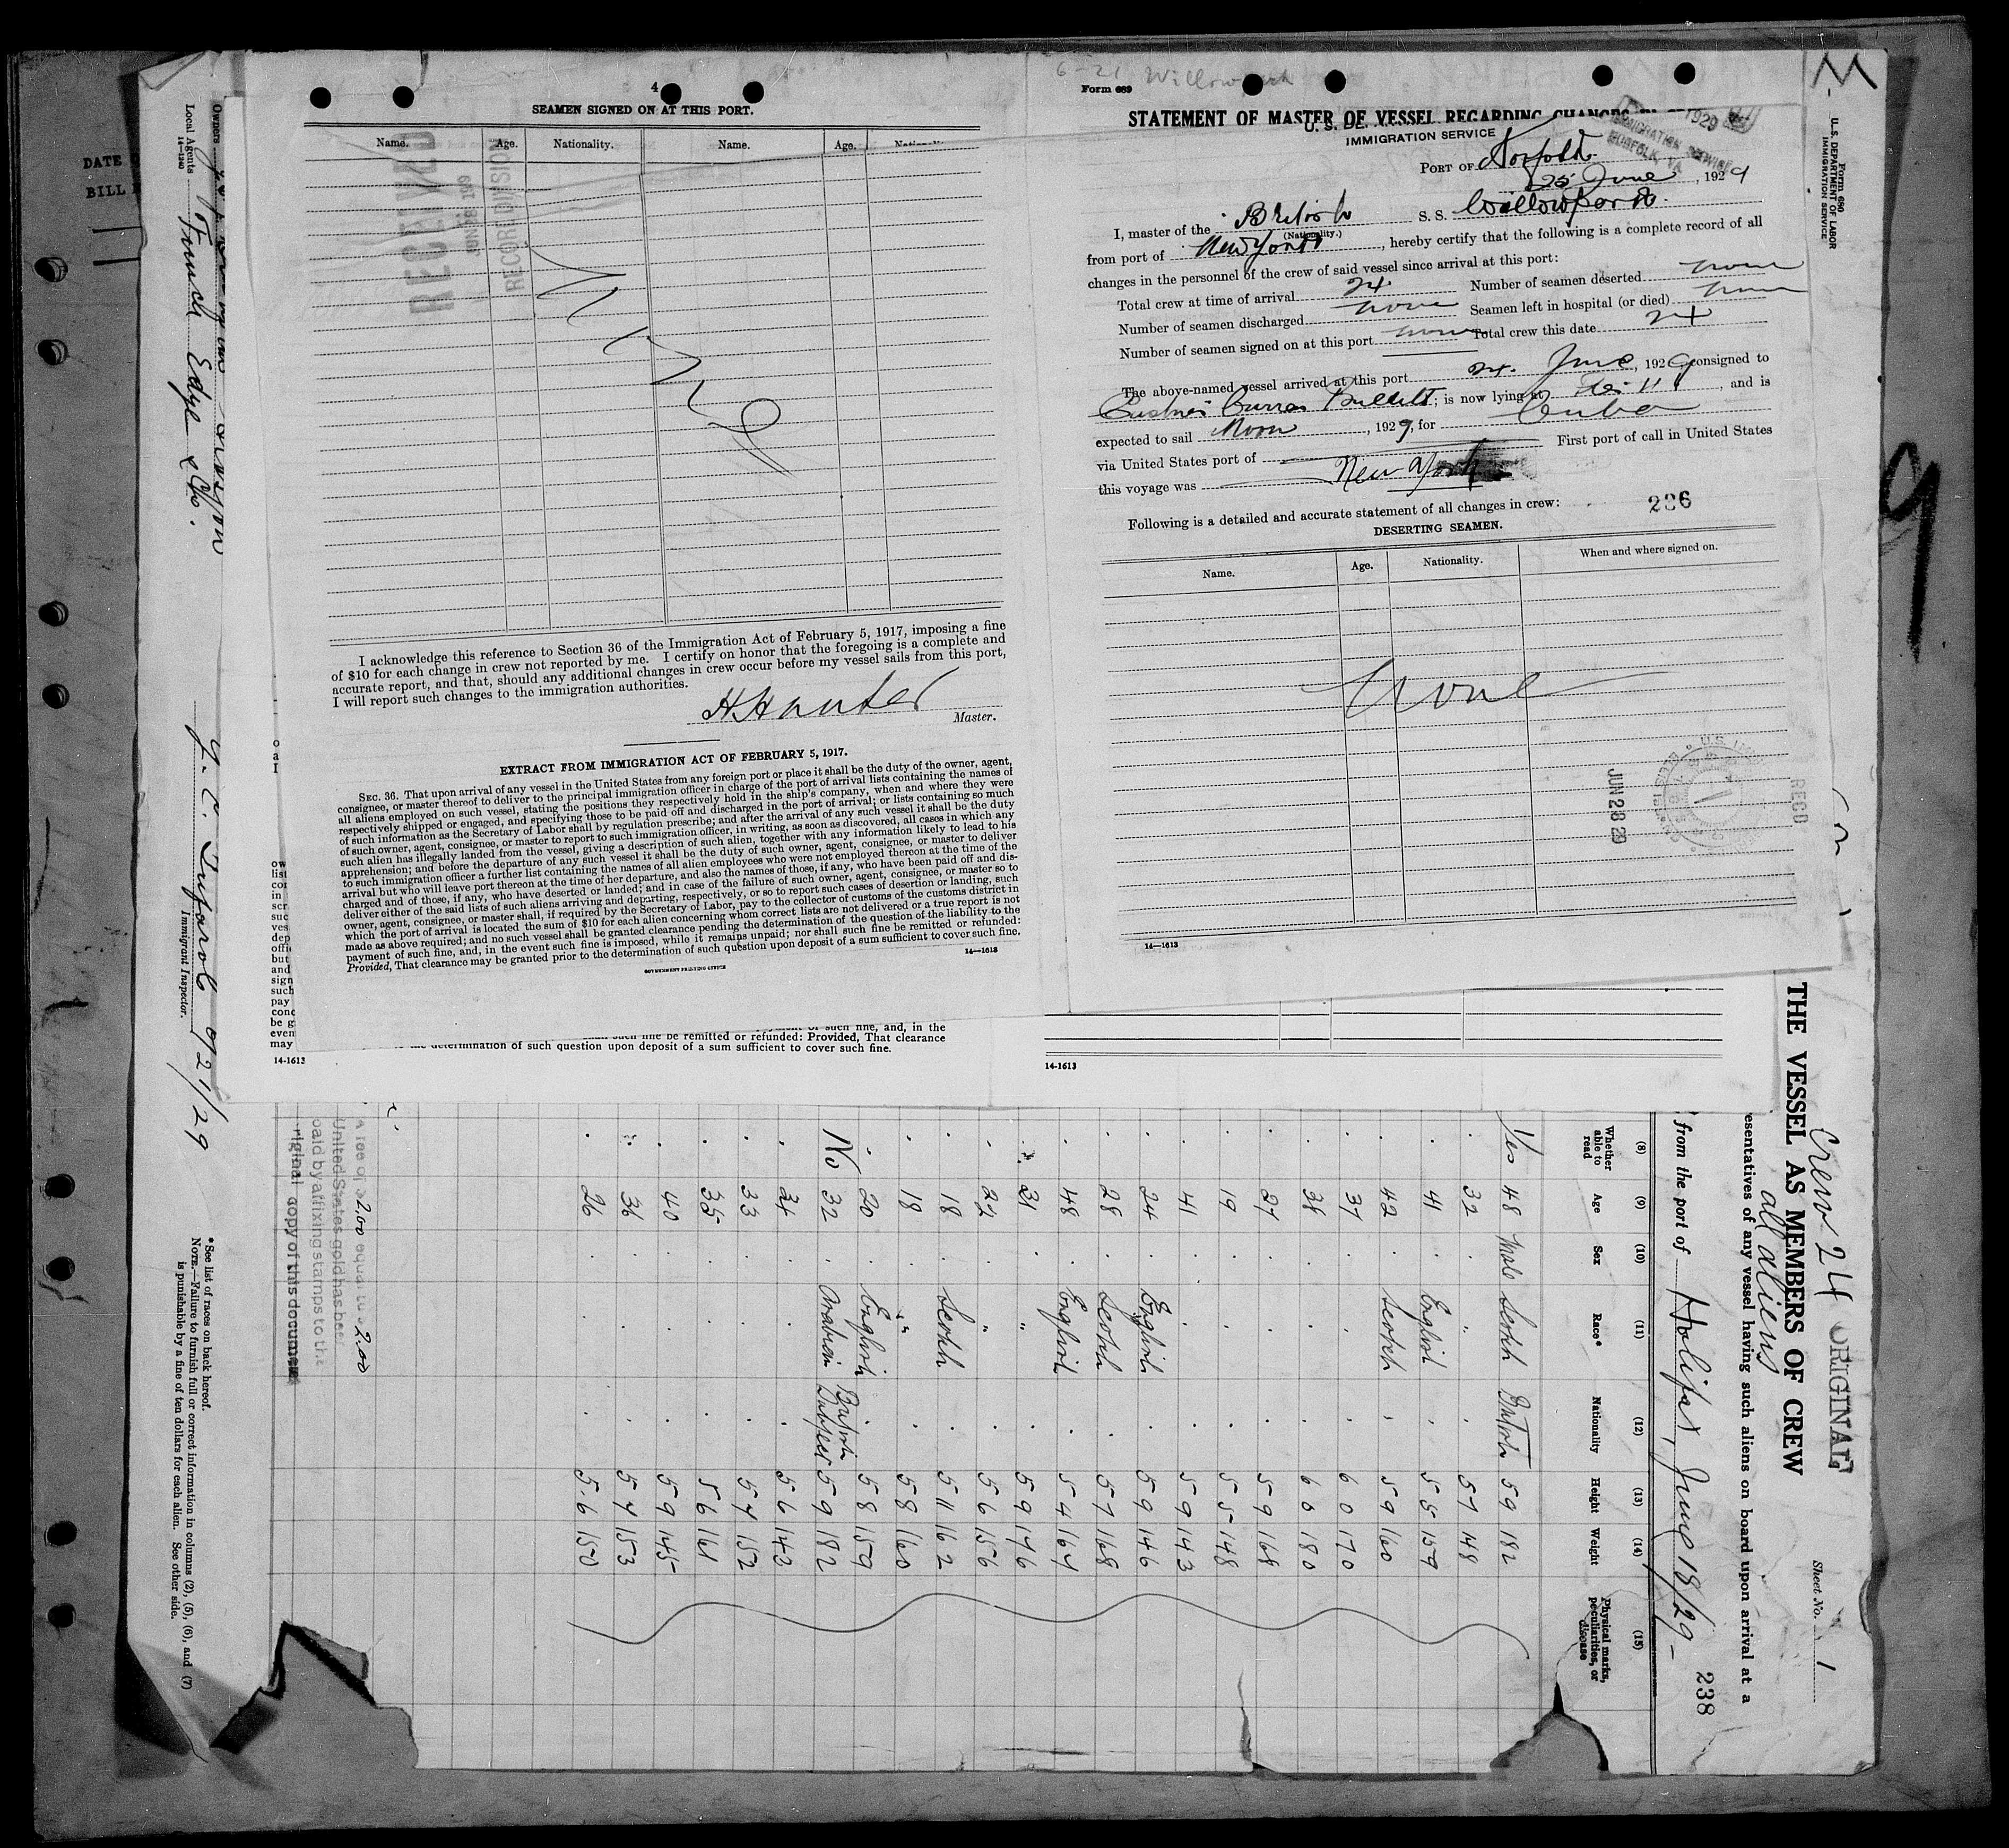 4
SEAMEN SIGNED ON AT THIS PORT.
Name. Age. Nationality. Name. Age.
RECEIVED
RECORD DIVISION
None
I acknowledge this reference to Section 36 of the Immigration Act of February 5, 1917, imposing a fine
of $10 for each change in crew not reported by me. I certify on honor that the foregoing is a complete and
accurate report, and that, should any additional changes in crew occur before my vessel sails from this port,
I will report such changes to the immigration authorities.
H Hunter
Master.
EXTRACT FROM IMMIGRATION ACT OF FEBRUARY 5, 1917.
SEC. 36. That upon arrival of any vessel in the United States from any foreign port or place it shall be the duty of the owner, agent,
consignee, or master thereof to deliver to the principal immigration officer in charge of the port of arrival lists containing the names of
all aliens employed on such vessel, stating the positions they respectively hold in the ship's company, when and where they were
respectively shipped or engaged, and specifying those to be paid off and discharged in the port of arrival; or lists containing so much
of such information as the Secretary of Labor shall by regulation prescribe; and after the arrival of any such vessel it shall be the duty
of such owner, agent, consignee, or master to report to such immigration officer, in writing, as soon as discovered, all cases in which any
such alien has illegally landed from the vessel, giving a description of such alien, together with any information likely to lead to his
apprehension; and before the departure of any such vessel it shall be the duty of such owner, agent, consignee, or master to deliver
to such immigration officer a further list containing the names of all alien employees who were not employed thereon at the time of the
arrival but who will leave port thereon at the time of her departure, and also the names of those, if any, who have been paid off and dis-
charged and of those, if any, who have deserted or landed; and in case of the failure of such owner, agent, consignee, or master so to
deliver either of the said lists of such aliens arriving and departing, respectively, or so to report such cases of desertion or landing, such
owner, agent, consignee, or master shall, if required by the Secretary of Labor, pay to the collector of customs of the customs district in
which the port of arrival is located the sum of $10 for each alien concerning whom correct lists are not delivered or a true report is not
made as above required; and no such vessel shall be granted clearance pending the determination of the question of the liability to the
payment of such fine, and, in the event such fine is imposed, while it remains unpaid; nor shall such fine be remitted or refunded:
Provided, That clearance may be granted prior to the determination of such question upon deposit of a sum sufficient to cover such fine.
14—1613
GOVERNMENT PRINTING OFFICE
such fine, and, in the
such fine be remitted or refunded: Provided, That clearance
determination of such question upon deposit of a sum sufficient to cover such fine.
14-1613
6-21
Form 689
STATEMENT OF MASTER OF VESSEL REGARDING CHANGES
IMMIGRATION SERVICE
IMMIGRATION SERVICE
NORFOLK, VA
PORT OF Norfolk
25 June, 1929
I, master of the British S. S. Willowpark
(Nationality.)
from port of New York, hereby certify that the following is a complete record of all
changes in the personnel of the crew of said vessel since arrival at this port:
Total crew at time of arrival 24 Number of seamen deserted none
Number of seamen discharged none Seamen left in hospital (or died) none
Number of seamen signed on at this port none Total crew this date 24
The above-named vessel arrived at this port 24 June, 1929 consigned to
; is now lying at , and is
expected to sail Noon, 1929, for Cuba
via United States port of First port of call in United States
this voyage was New York
Following is a detailed and accurate statement of all changes in crew:
236
DESERTING SEAMEN.
Name. Age. Nationality. When and where signed on.
None
JUN 28 29
REC'D
14—1613
14-1613
Form 680
U. S. DEPARTMENT OF LABOR
IMMIGRATION SERVICE
Crew 24
all aliens
ORIGINAL
Sheet No. 1
THE VESSEL AS MEMBERS OF CREW
esentatives of any vessel having such aliens on board upon arrival at a
from the port of Halifax, June 18/29
238
(8) (9) (10) (11) (12) (13) (14) (15)
Whether able to read Age Sex Race* Nationality Height Weight Physical marks, peculiarities, or disease
Yes 48 Male Scotch British 5 9 182
32 " 5 7 148
41 English 5 5 159
42 Scotch 5 9 160
37 6 0 170
38 6 0 180
27 5 9 168
19 5 5 148
41 5 9 143
24 English 5 9 146
28 Scotch 5 7 168
48 English 5 4 164
31 " 5 9 176
22 " 5 6 156
18 Scotch 5 11 162
18 " 5 8 160
20 English British 5 8 159
No 32 Arabian Subject 5 9 182
34 5 6 143
33 5 7 152
35 5 6 161
40 5 9 145
36 5 7 153
26 5 6 150
2.00 equal to 2.00
United States gold has been
paid by affixing stamps to the
riginal copy of this document
*See list of races on back hereof.
NOTE.—Failure to furnish full or correct information in columns (2), (5), (6), and (7)
is punishable by a fine of ten dollars for each alien. See other side.
Owners
Local Agents Funch Edye & Co.
14—1240
6/21/29
Immigrant Inspector.
DATE
BILL